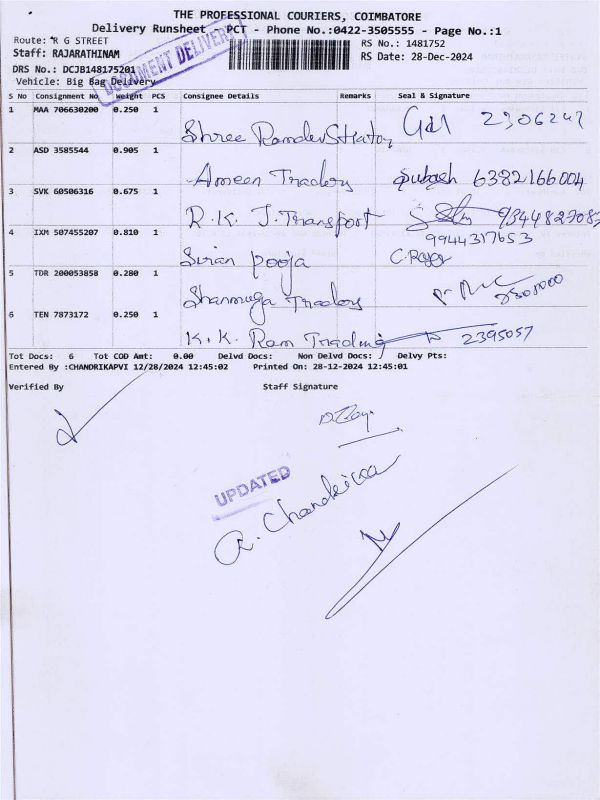 THE PROFESSIONAL COURIERS, COIMBATORE
Delivery Runsheet - PCT - Phone No.:0422-3505555 - Page No.:1
DOCUMENT DELIVERY
Route: R G STREET
RS No.: 1481752
Staff: RAJARATHINAM
RS Date: 28-Dec-2024
DRS No.: DCJB148175201
Vehicle: Big Bag Delivery
S No Consignment No Weight PCS Consignee Details Remarks Seal & Signature
1 MAA 706630200 0.250 1
Shree 2306247
2 ASD 3585544 0.905 1
Ameen Traders Subash 6382166004
3 SVK 60506316 0.675 1
R.K. J. Transport
4 IXM 507455207 0.810 1
9944317653
Siran pooja
5 TDR 200053858 0.280 1
Shanmuga Traders
6 TEN 7873172 0.250 1
K.K. Ram Trading 2395057
Tot Docs: 6 Tot COD Amt: 0.00 Delvd Docs: Non Delvd Docs: Delvy Pts:
Entered By :CHANDRIKAPVI 12/28/2024 12:45:02 Printed On: 28-12-2024 12:45:01
Verified By Staff Signature
UPDATED
R. Chandrika